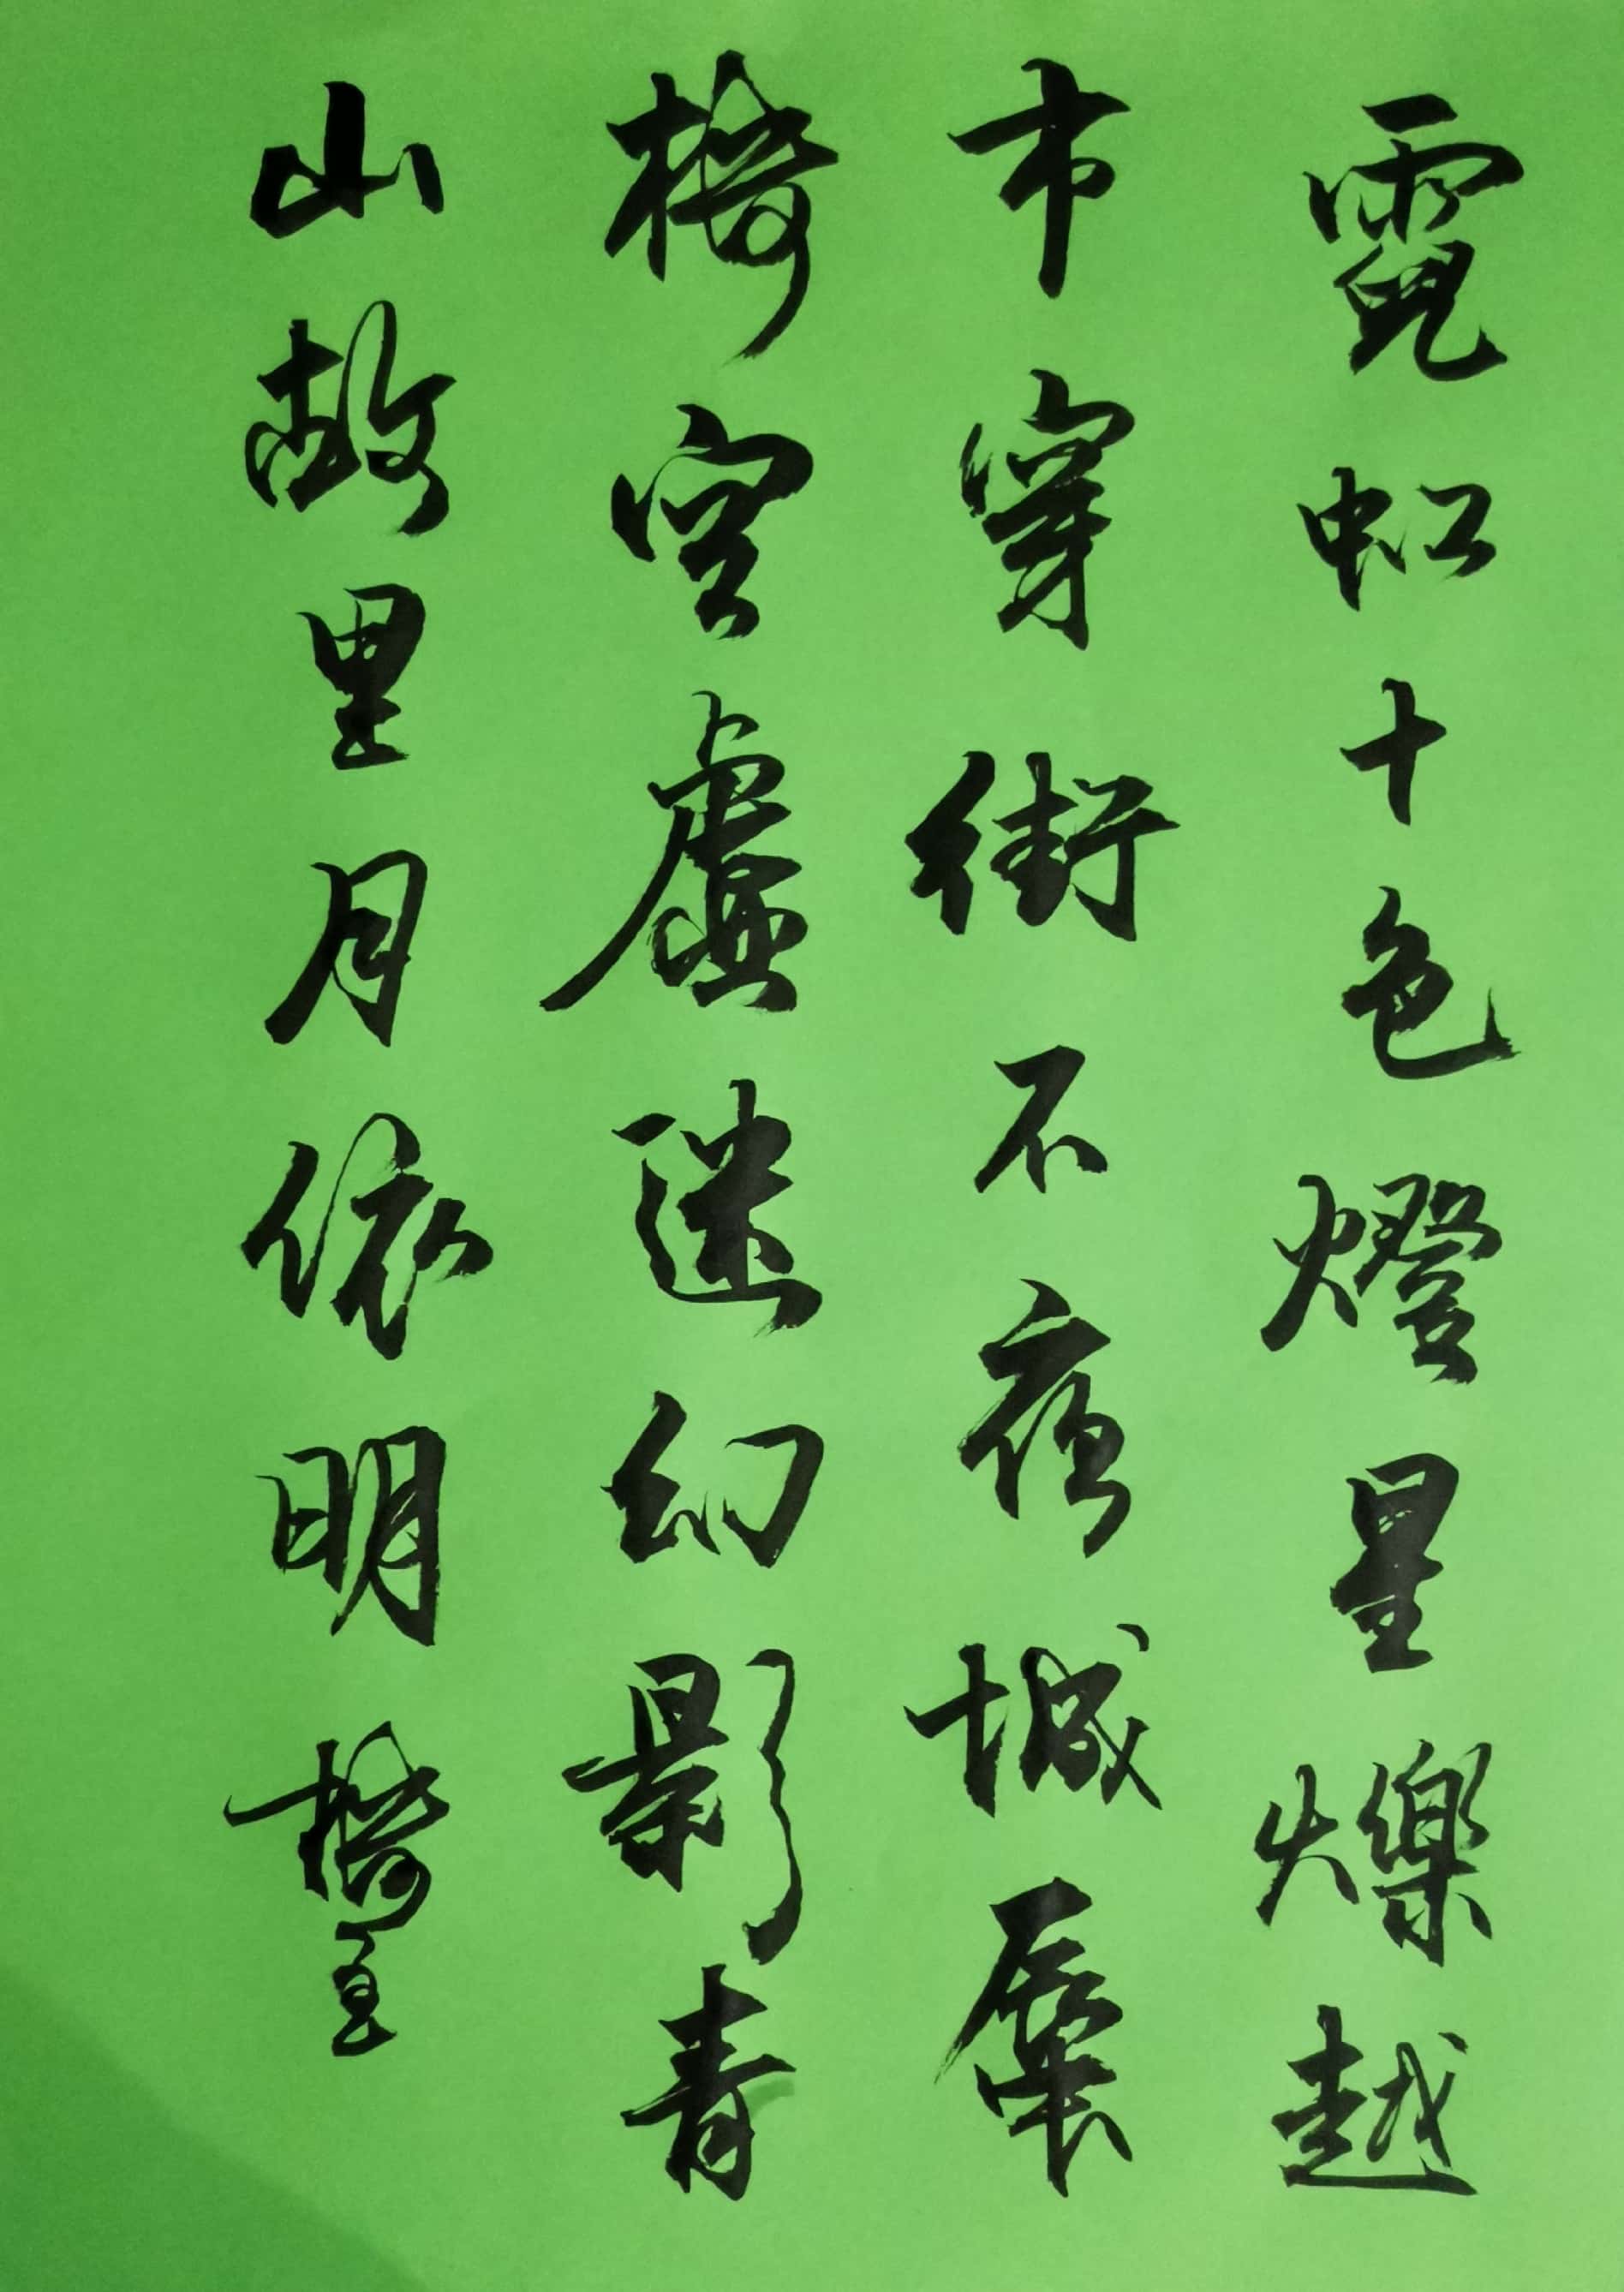 霓虹十色燈星爍越
市穿街不夜城蜃
樓空虛迷幻影青
山故里月依明樓主